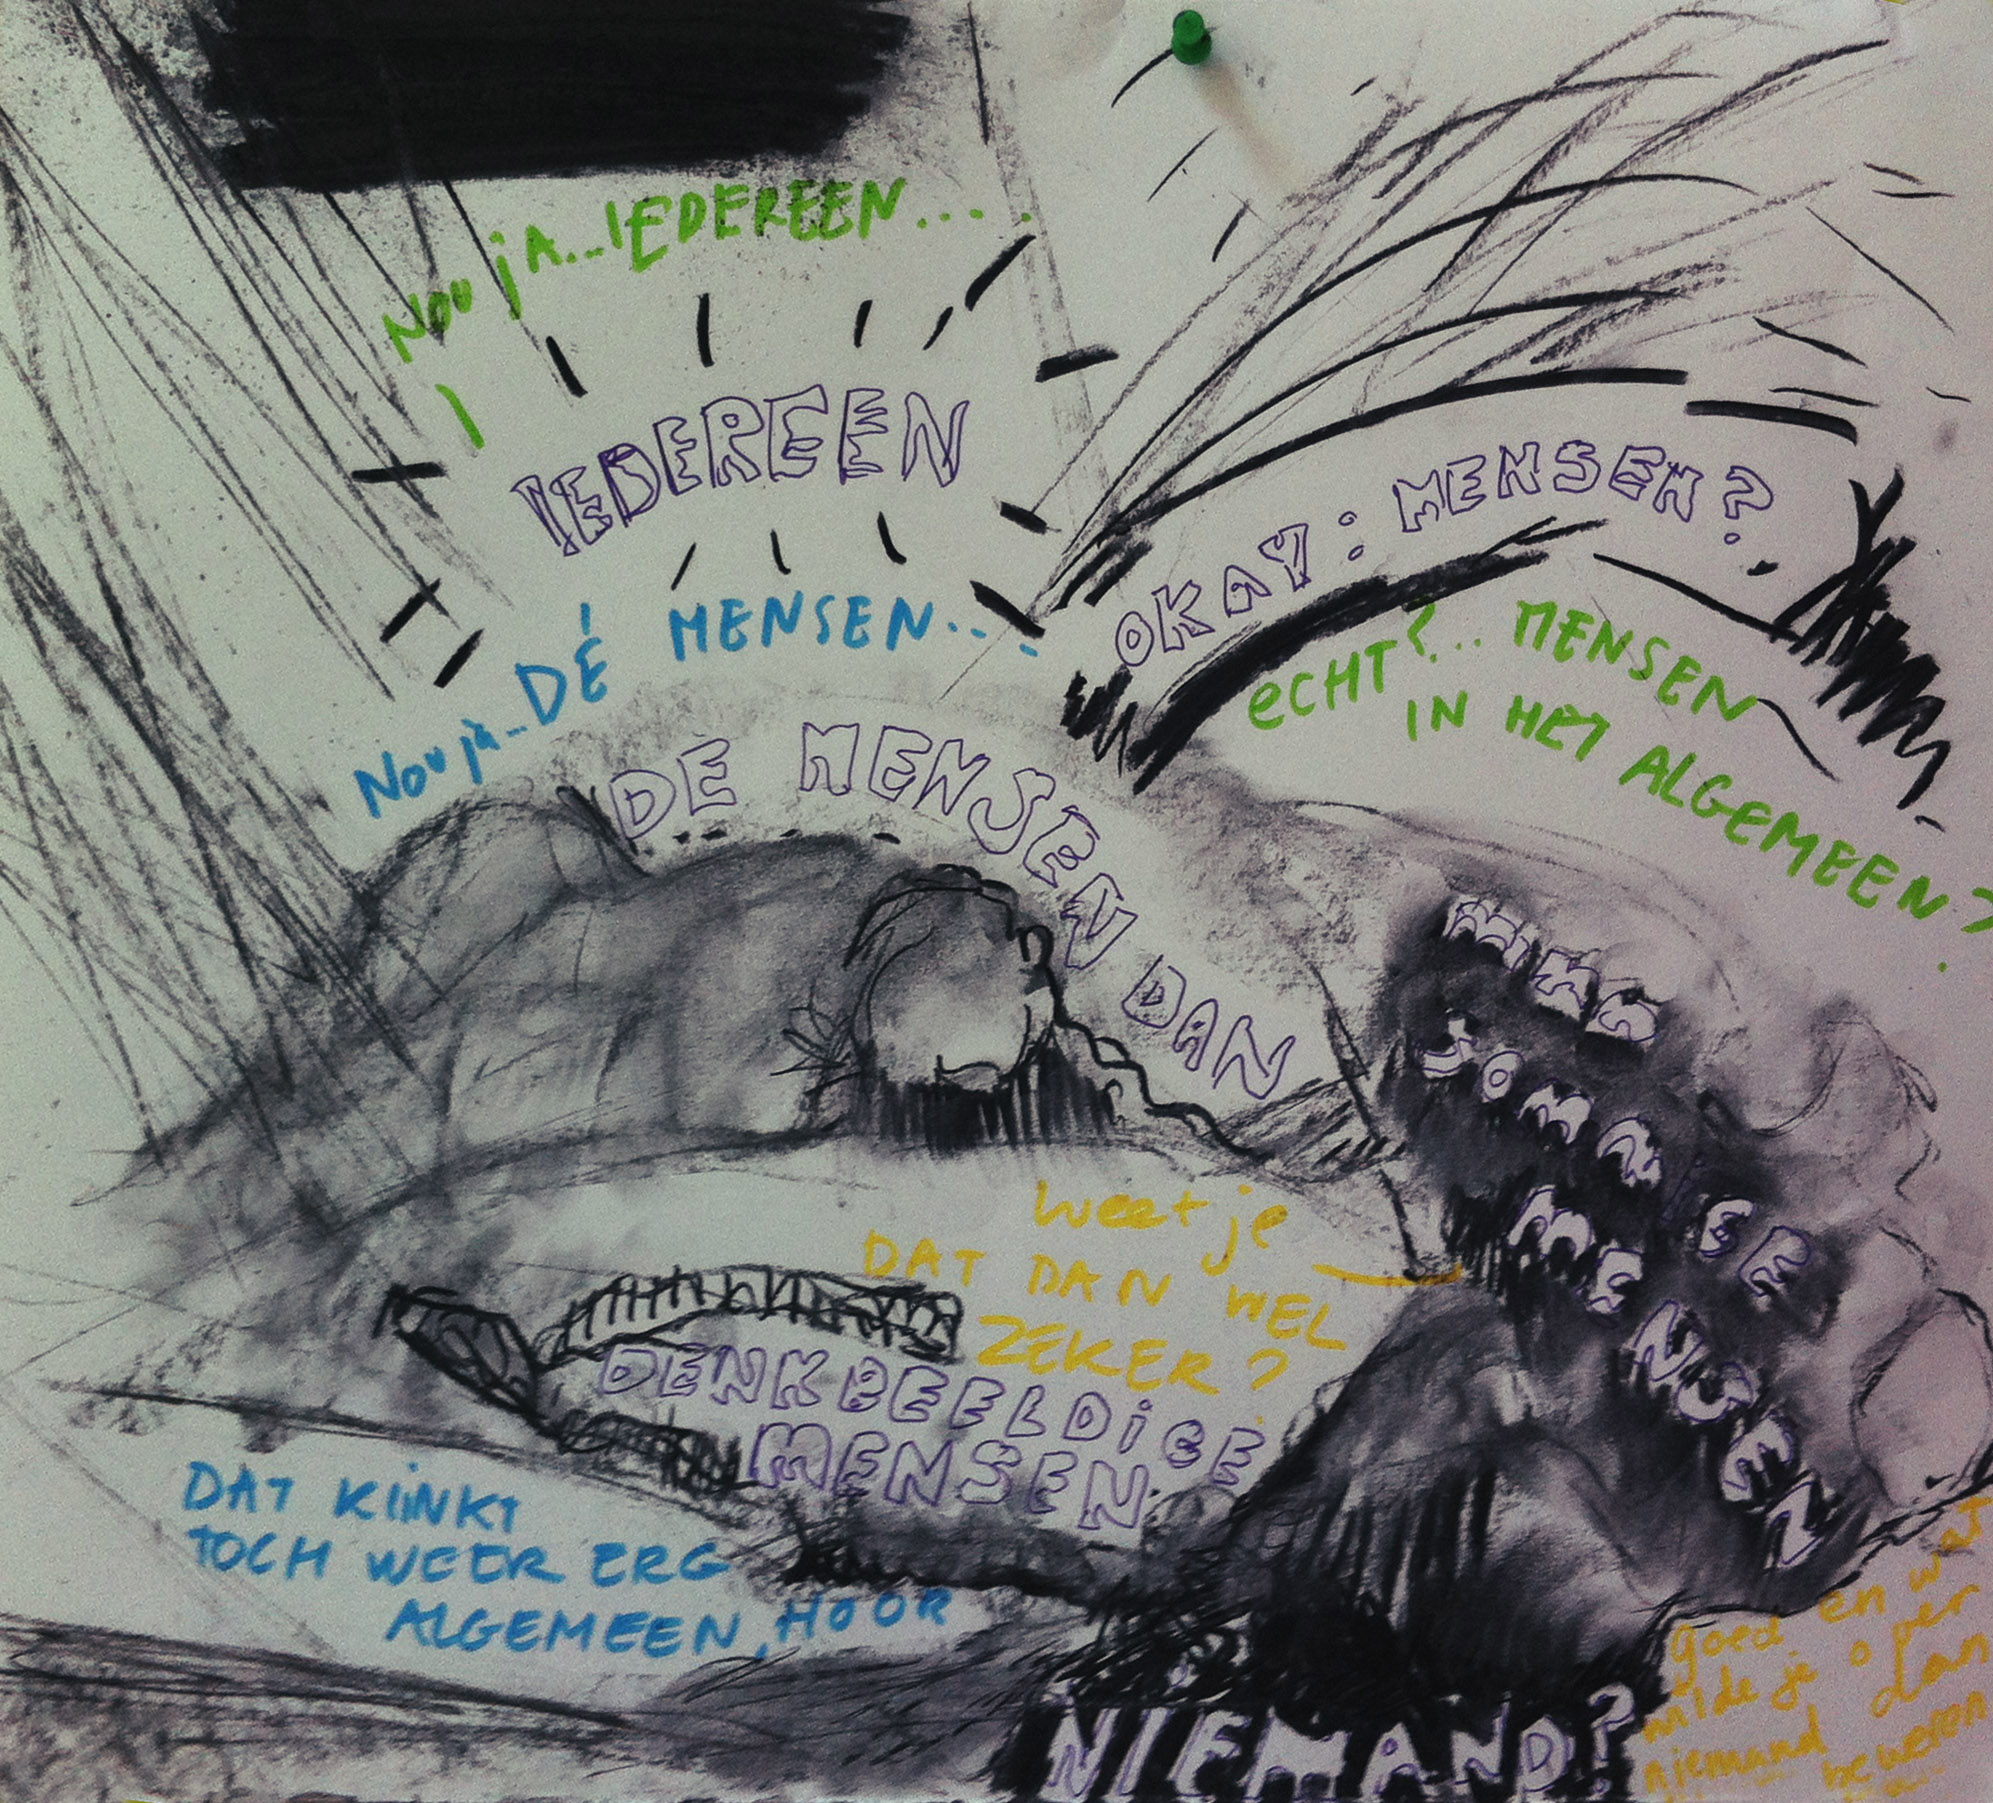 Nou ja...IEDEREEN....
IEDEREEN
Nou ja...DÉ MENSEN...
DE MENSEN DAN
OKAY: MENSEN?
ECHT?... MENSEN
IN HET ALGEMEEN?
SOMMIGE
MENSEN
weet je
DAT DAN WEL
ZEKER?
DENKBEELDIGE
MENSEN
DAT KLINKT
TOCH WEER ERG
ALGEMEEN, HOOR
NIEMAND?
goed en wat
wilde je over
niemand dan
beweren